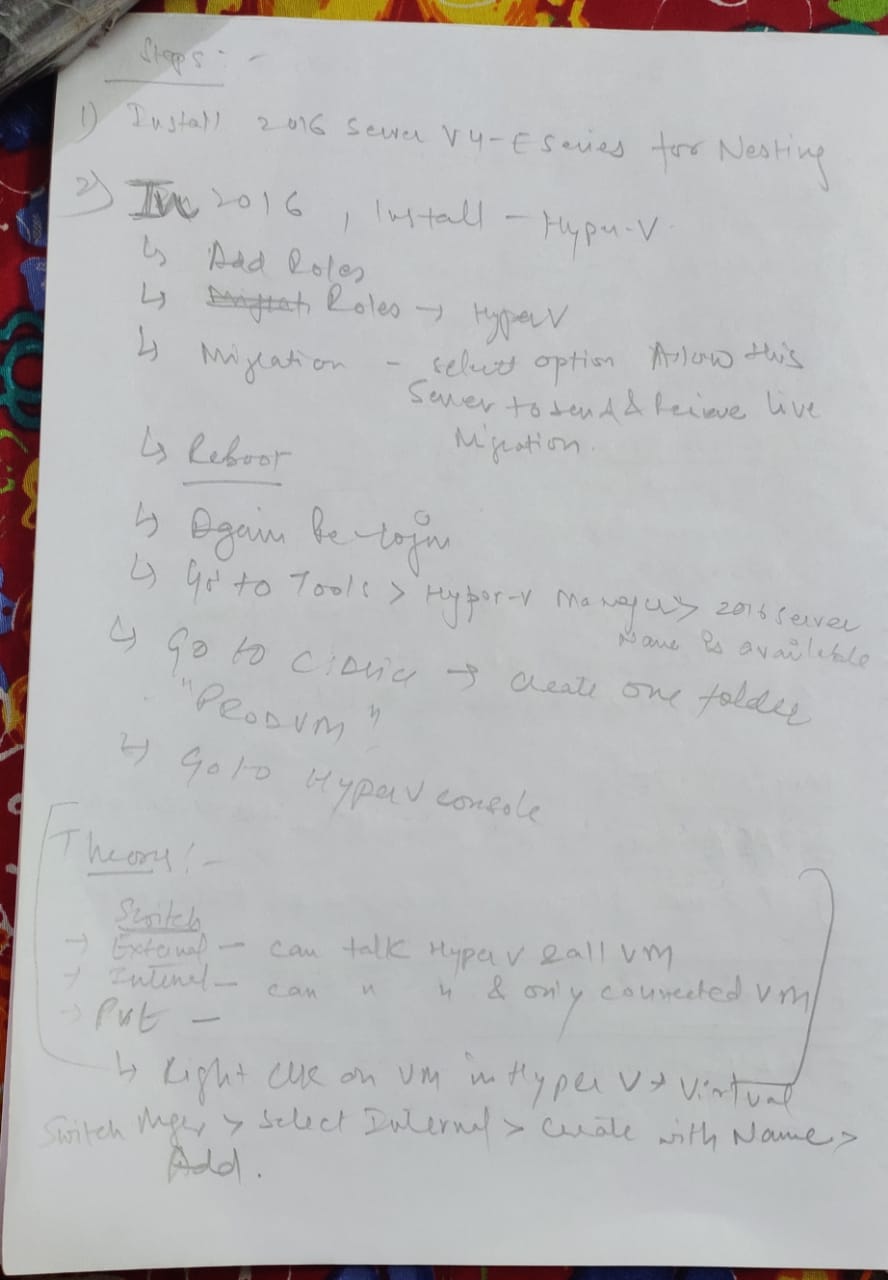 Steps :-
1) Install 2016 Server V4-E Series for Nesting
2) In 2016, Install - Hyper-V
↳ Add Roles
↳ Roles → HyperV
↳ Migration - select option Allow this
Server to send & Recieve live
Migration.
↳ Reboot
↳ Again Re-login
↳ Go to Tools > Hyper-V Manager > 2016 Server
Name is available
↳ Go to C: Drive → Create one folder
"PRODVM"
↳ Go to Hyper V console
Theory :-
Switch
→ External - can talk Hyper V & all VM
→ Internel - can " " & only connected VM
→ Pvt -
↳ Right Clk on VM in Hyper V → Virtual
Switch Mger > Select Internal > Create with Name >
Add.